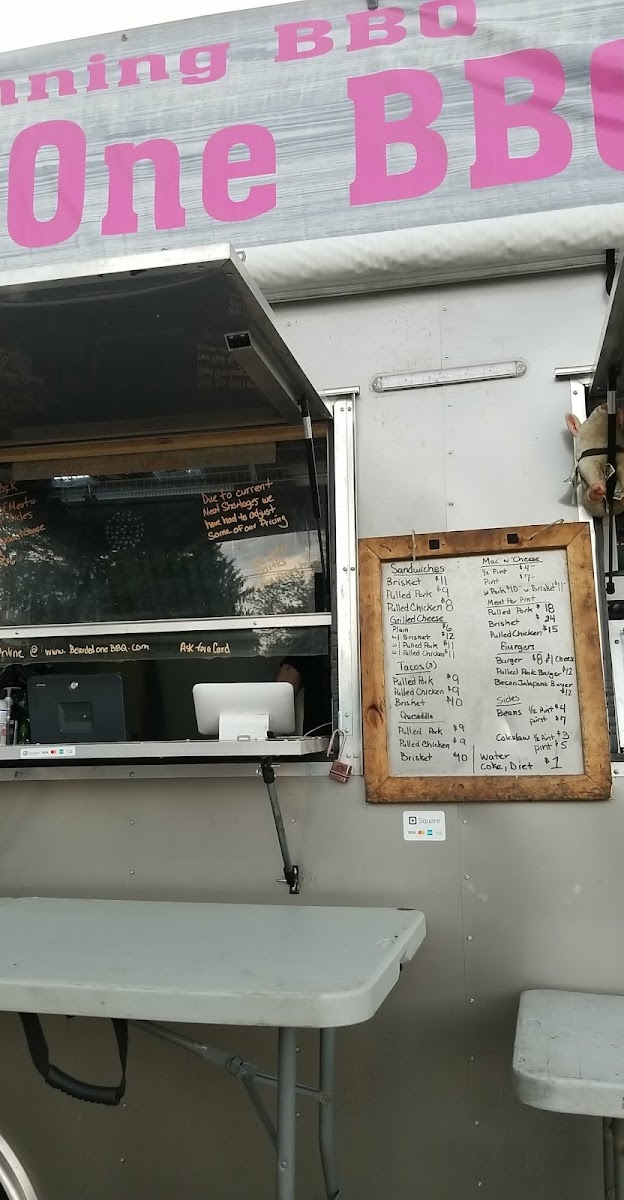 nning BBQ
One BBQ
Due to current
Meat Shortages we
have had to adjust
some of our Pricing
@ www.BeardedOneBBQ.com
Ask for a Card
Square VISA
Sandwiches
Brisket $11
Pulled Pork $9
Pulled Chicken $8
Grilled Cheese
Plain $6
w/ Brisket $12
w/ Pulled Pork $11
w/ Pulled Chicken $11
Tacos (3)
Pulled Pork $9
Pulled Chicken $9
Brisket $10
Quesadilla
Pulled Pork $9
Pulled Chicken $9
Brisket $10
Mac 'N' Cheese
½ Pint $4-
Pint $7-
w Pork $10- w Brisket $11-
Meat Per Pint
Pulled Pork $18
Brisket $24
Pulled Chicken $15
Burgers
Burger $8 $1 Cheese
Pulled Pork Burger $12
Bacon Jalapeno Burger
$12
Sides
Beans ½ Pint $4
pint $7
Coleslaw ½ Pint $3
pint $5
Water
Coke, Diet $1
Square
VISA